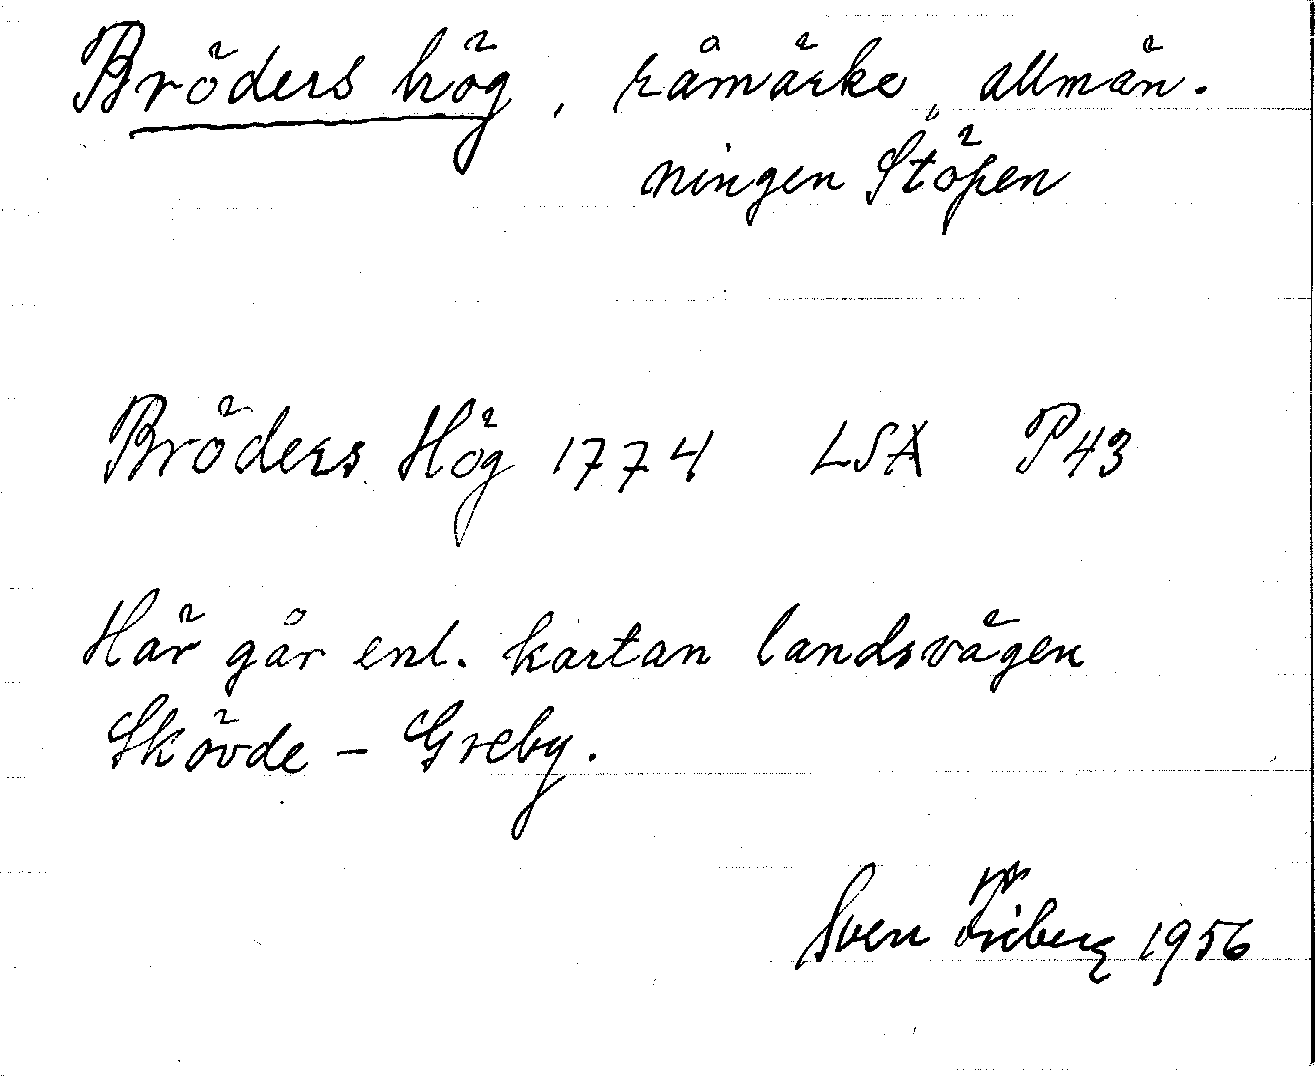 Bröders hög, råmärke, allmän.
ningen Stöpen
Bröders Hög 1774 LSA P43
Här går enl. kartan landsvägen
Skövde – Greby.
Sven Friberg 1956